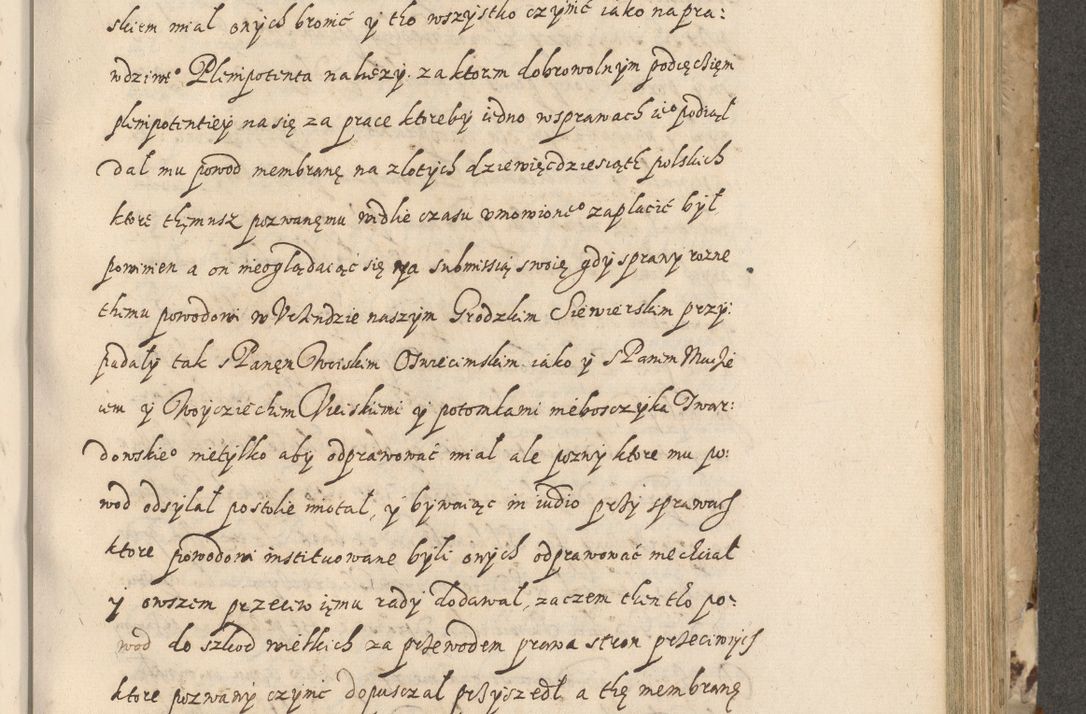 skiem miał onych bronić y tho wszystko czynić iako na pra:
wdziweo Plenipotenta należy. za ktorem dobrowolnym podięchięm
plenipotentiey na się za prace ktoreby iedno w sprawach ieo podiął
dał mu powod membranę na złotych dziewięćdziesiąth polskich
ktore thęmusz pozwanęmu wedlie czasu vmowioneo zapłacić był
powinien a on nieoglądaiąć się na submissią swoię gdy sprawy rozne
themu powodowi w Vrzendzie naszym Grodzkim Siewierskim przy:
padały tak s Panęm Woiskim Oswiecimskim iako y s Panem Macie
iem y Woyczziechem Wieiskiemi y potomkami niebosczyka Twar:
dowskieo nietylko aby odprawować miał ale pozwy ktore mu po:
wod odsyłał po stolie miotał, y bywaiąc in iudio przy sprawach
ktore powodowi instituowane byli onych odprawować nie chciał
y owszem przeciw ięmu rady dodawał, zaczem then tho po:
wod do szkod wielkich za przewodem prawa stron przeciwnych
ktore pozwany czynić dopusczał przyszedł a thę membranę